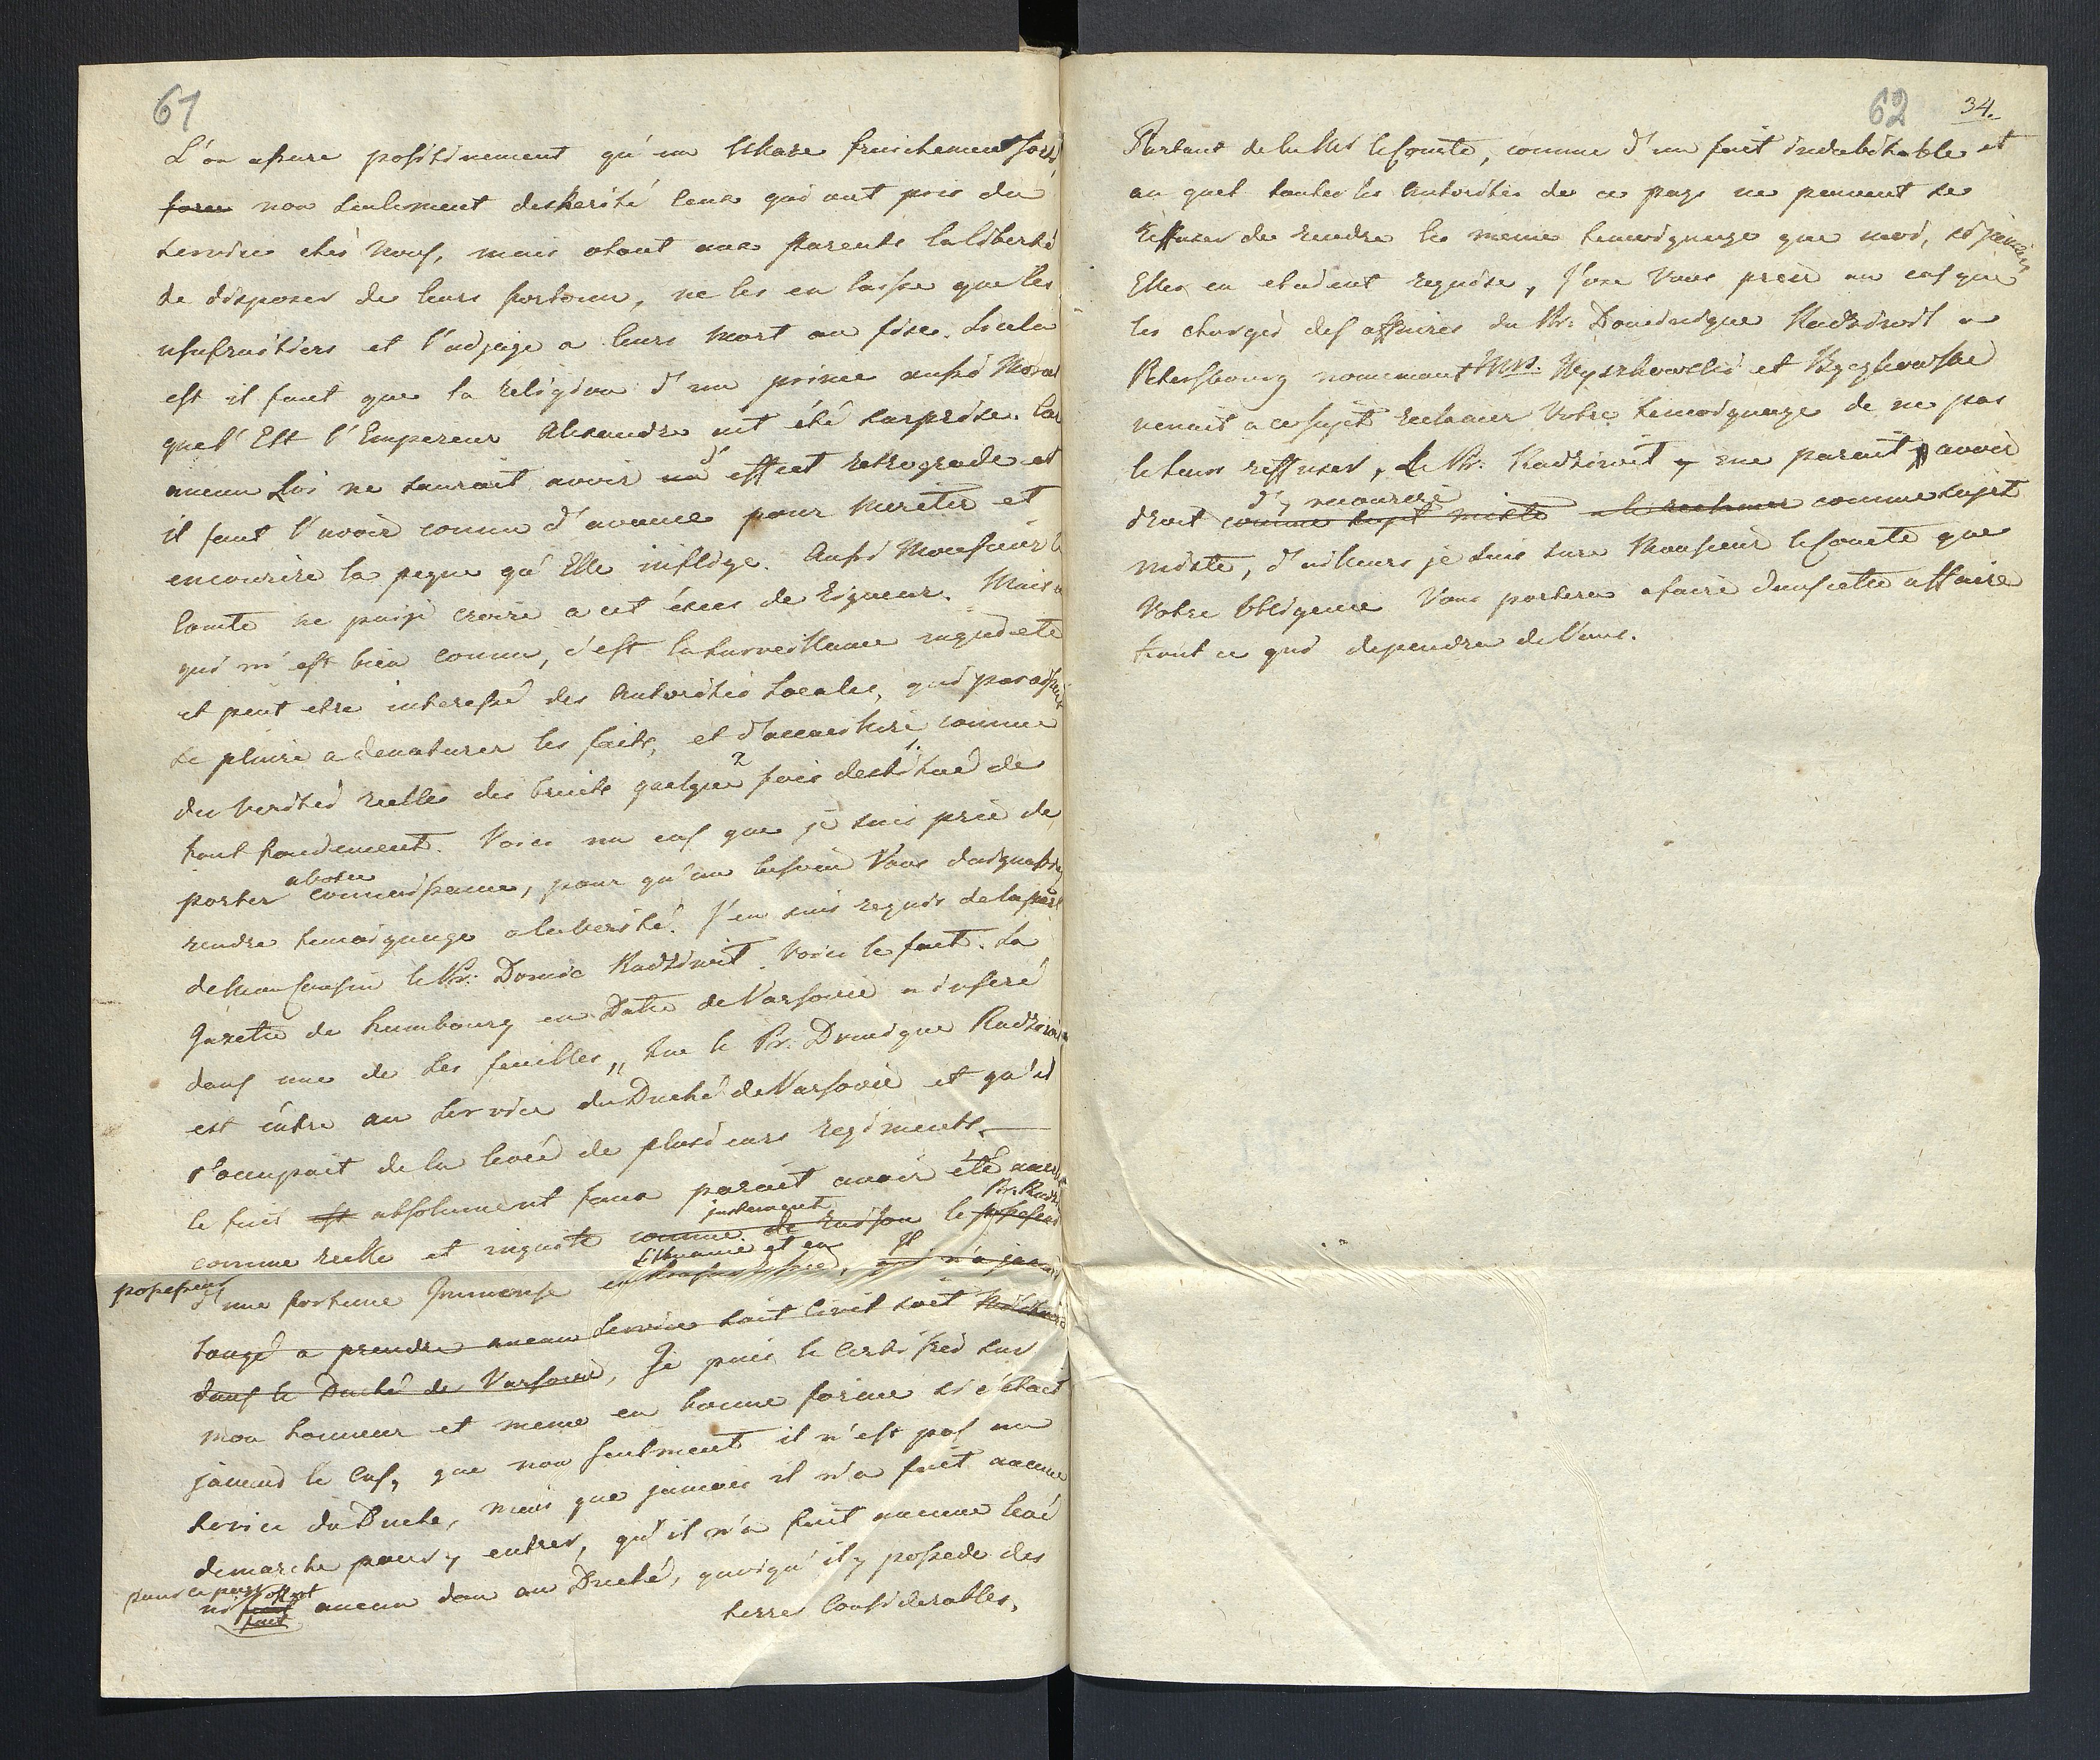 61
L'on assure positivement qu'un Ukase fraichement sorti,
non seulement desherité ceux qui ont pris du
service chés nous, mais otant aux parents la liberté
de disposer de leurs fortune, ne les en laisse que les
usufruitiers et l'adjuge a leurs mort au fisc.
est il faut que la religion d'un prince aussi Moral
quel' Est l'Empereur Alexandre ait été surprise. Car
aucun Loi ne saurait avoir un d' effect retrograde et
il faut l'avoir connu d'avance pour meriter et
encourire la peyne qu'Elle inflige. Aussi Monsieur le
Comte ne puisje croire a cet éxces de Rigueur. Mais
qui m'est bien connu, c'est la surveillance inquiete
et peut etre interessé des Autorités Locales, qui paraissent
se plaire a denaturer les faits, et d'accueillire comme
des verités reelles des bruits quelque 2 fois 1. destitué de
tout fondement. Voici un cas que je suis prié de
porter a votre connaissance, pour qu'au besoin Vous daignassiez
rendre temoignage a la verité. J'en suis requis de la part
de Mon Cousin le Pr: Domic Radziwil. Voici le fait. La
Gazette de Hambourg en Date de Varsovie a inseré
dans une de ses feuilles „ que le Pr. Dominique Radziwil
est éntre au service du Duché de Varsovie et qu'il
s'occupait de la levée de plusieurs regiments. —
le fait est absolument faux parait avoir été
comme reelle et inquiete justement comme de raison le Pr. Radz possesseur
possesseur d'une fortune Immense en Lithuanie et en qui Il n'a jamais
songé a prendre aucun service soit Civil soit Militaire
dans le Duché de Varsovie, Je puis le Certifier sur
mon honneur et meme en bonne forme si c'etait
jamais le Cas, que non seulment il n'est pas au
service du Duche, mais que jamais il n'a fait aucune
demarche pour y entrer, qu'il n'a fait aucune levé
dans ce pays ni offert fait aucun don au Duché, quoiqu'il y possede des
terres Considerables.
62 34.
Partant de la Mr le Comte, comme d'un fait indubitable et
au quel toutes les Autorités de ce pays ne peuvent se
reffuser de rendre les meme temoignage que moi, si jamais
Elles en etaient requise, J'ose Vous prier au cas que
les chargés des affaires du Pr: Dominique Radziwil a
Petersbourg nomemant MM. et
venait a ce sujet reclamer Votre temoignage de ne pas
le leur reffuser, Le Pr: Radziwil y me parait avoir
droit d'y recourir comme sujet mixte a le reclamer comme sujet
mixte, d'ailleurs je suis sure Monsieur le Comte que
Votre Obligence Vous portera a faire dans cette affaire
tout ce qui dependra de Vous.